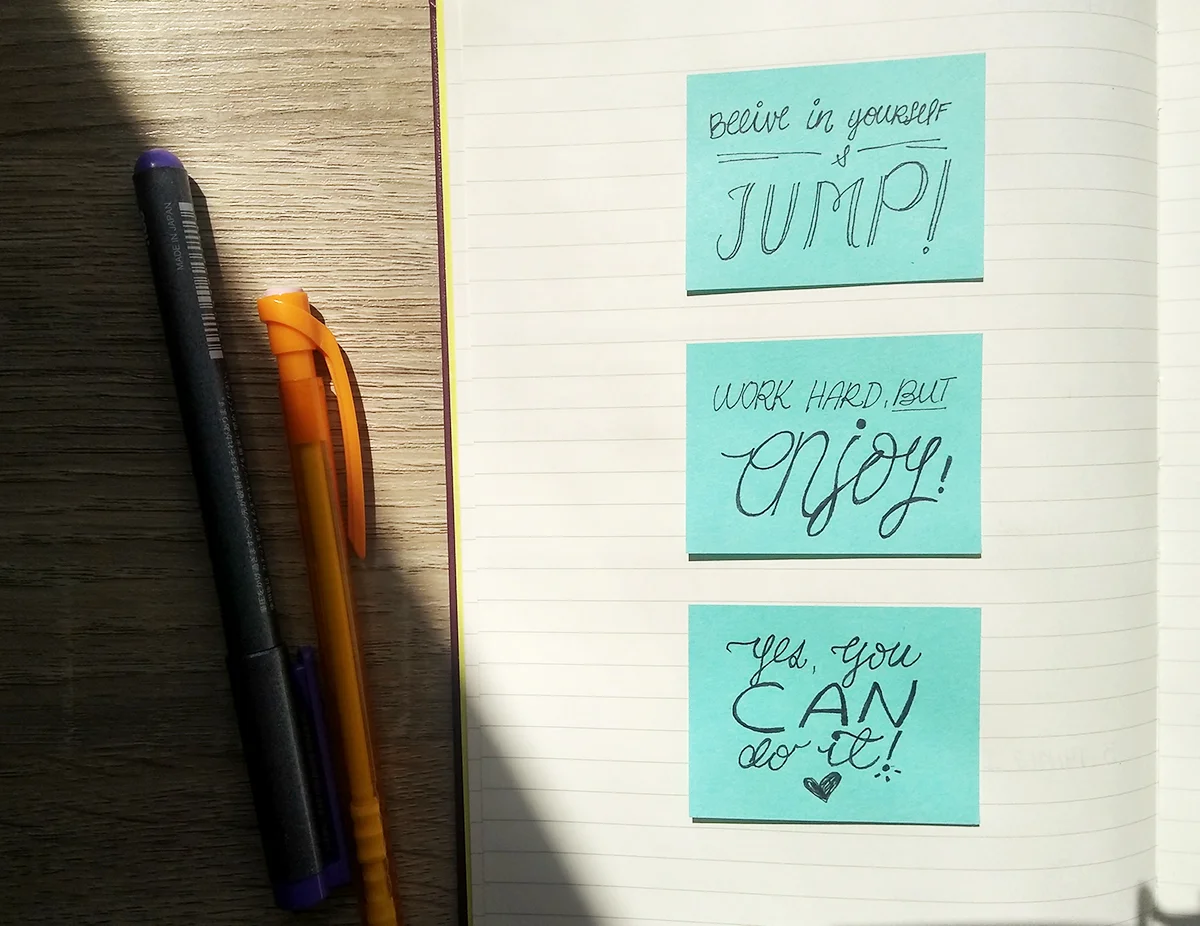 MADE IN JAPAN
Beeive in yourself
&
JUMP!
WORK HARD, BUT
enjoy!
Yes, you
CAN
do it!